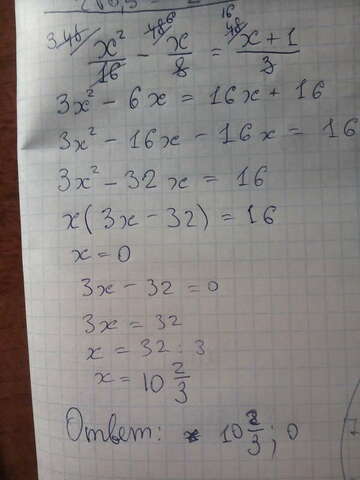 x²/16 - x/8 = x+1/3
3x² - 6x = 16x + 16
3x² - 16x - 16x = 16
3x² - 32x = 16
x(3x - 32) = 16
x = 0
3x - 32 = 0
3x = 32
x = 32 : 3
x = 10 2/3
Ответ: 10 2/3; 0